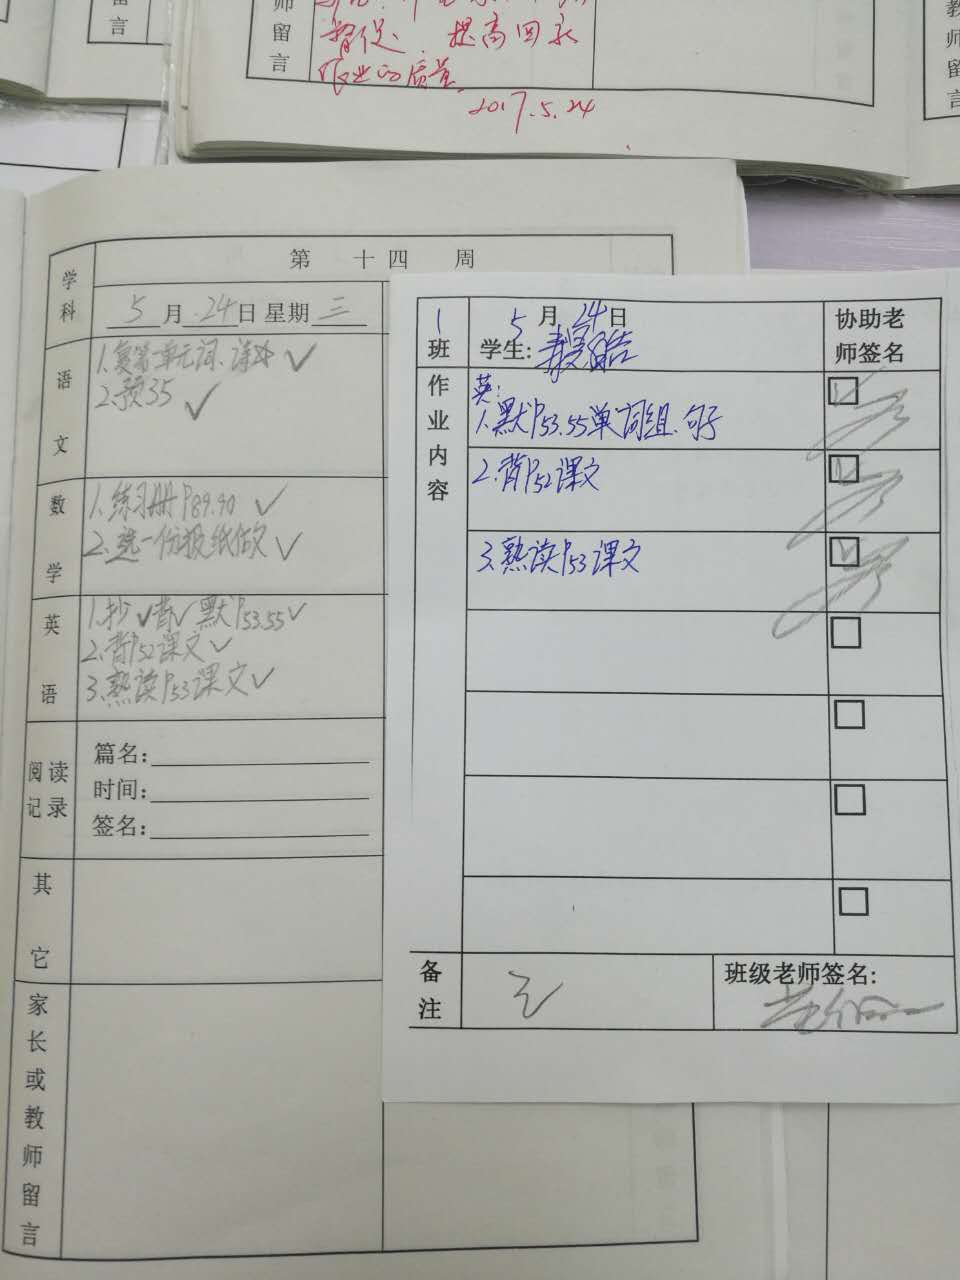 师留言
督促，提高回家
作业的质量
2017.5.24
留言
教师留言
第 十四 周
学科
5月24日 星期三
语文
1.复第单元词.
2.预35
数学
1.练习册P89.90
2.选一份报纸做
英语
1.抄 背 默P53.55
2.背P52课文
3.熟读P53课文
阅读记录
篇名:
时间:
签名:
其它
家长或教师留言
1班
5月24日
学生:
协助老师签名
作业内容
英:
1.默P53.55单词组.句子
2.背P52课文
3.熟读P53课文
备注
无
班级老师签名: